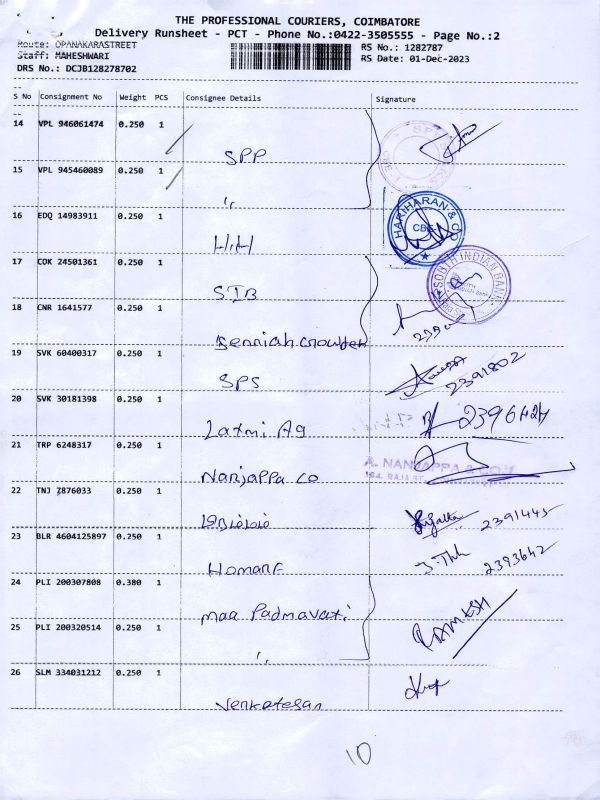 THE PROFESSIONAL COURIERS, COIMBATORE
Delivery Runsheet - PCT - Phone No.:0422-3505555 - Page No.:2
Route: OPANAKARASTREET
Staff: MAHESHWARI
DRS No.: DCJB128278702
RS No.: 1282787
RS Date: 01-Dec-2023
S No Consignment No Weight PCS Consignee Details Signature
14 VPL 946061474 0.250 1
SPP
15 VPL 945460089 0.250 1
"
16 EDQ 14983911 0.250 1
H.H
HARIHARAN & CO
CBE
17 COK 24501361 0.250 1
SIB
SOUTH INDIAN BANK
18 CNR 1641577 0.250 1
19 SVK 60400317 0.250 1
SPS
2391802
20 SVK 30181398 0.250 1
Laxmi Ag
21 TRP 6248317 0.250 1
Nanjappa CO
A. NANJAPPA & CO
22 TNJ 7876033 0.250 1
2391445
23 BLR 4604125897 0.250 1
2393642
24 PLI 200307808 0.380 1
maa Padmavati
RAMESH
25 PLI 200320514 0.250 1
"
26 SLM 334031212 0.250 1
Venkatesan
10